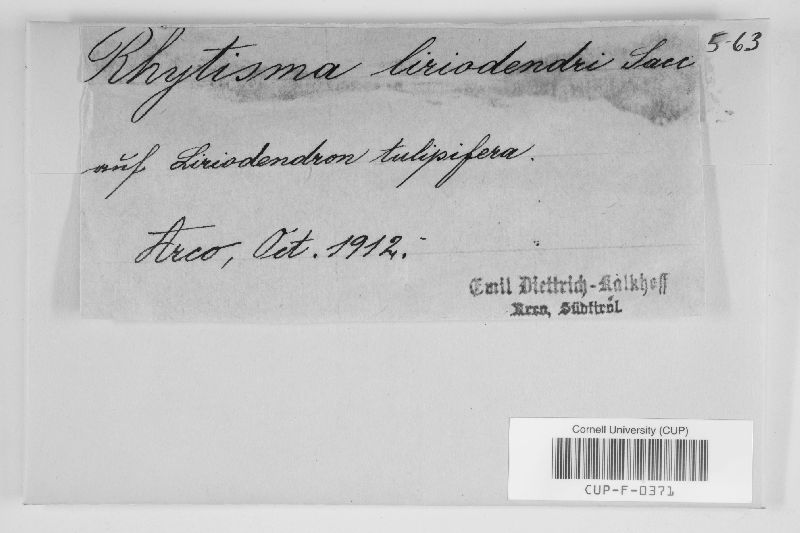 Rhytisma liriodendri Sacc
5-63
auf Liriodendron tulipifera.
Arco, Oct. 1912.
Emil Diettrich-Kalkhoff
Arco, Südtirol
Cornell University (CUP)
CUP-F-0371